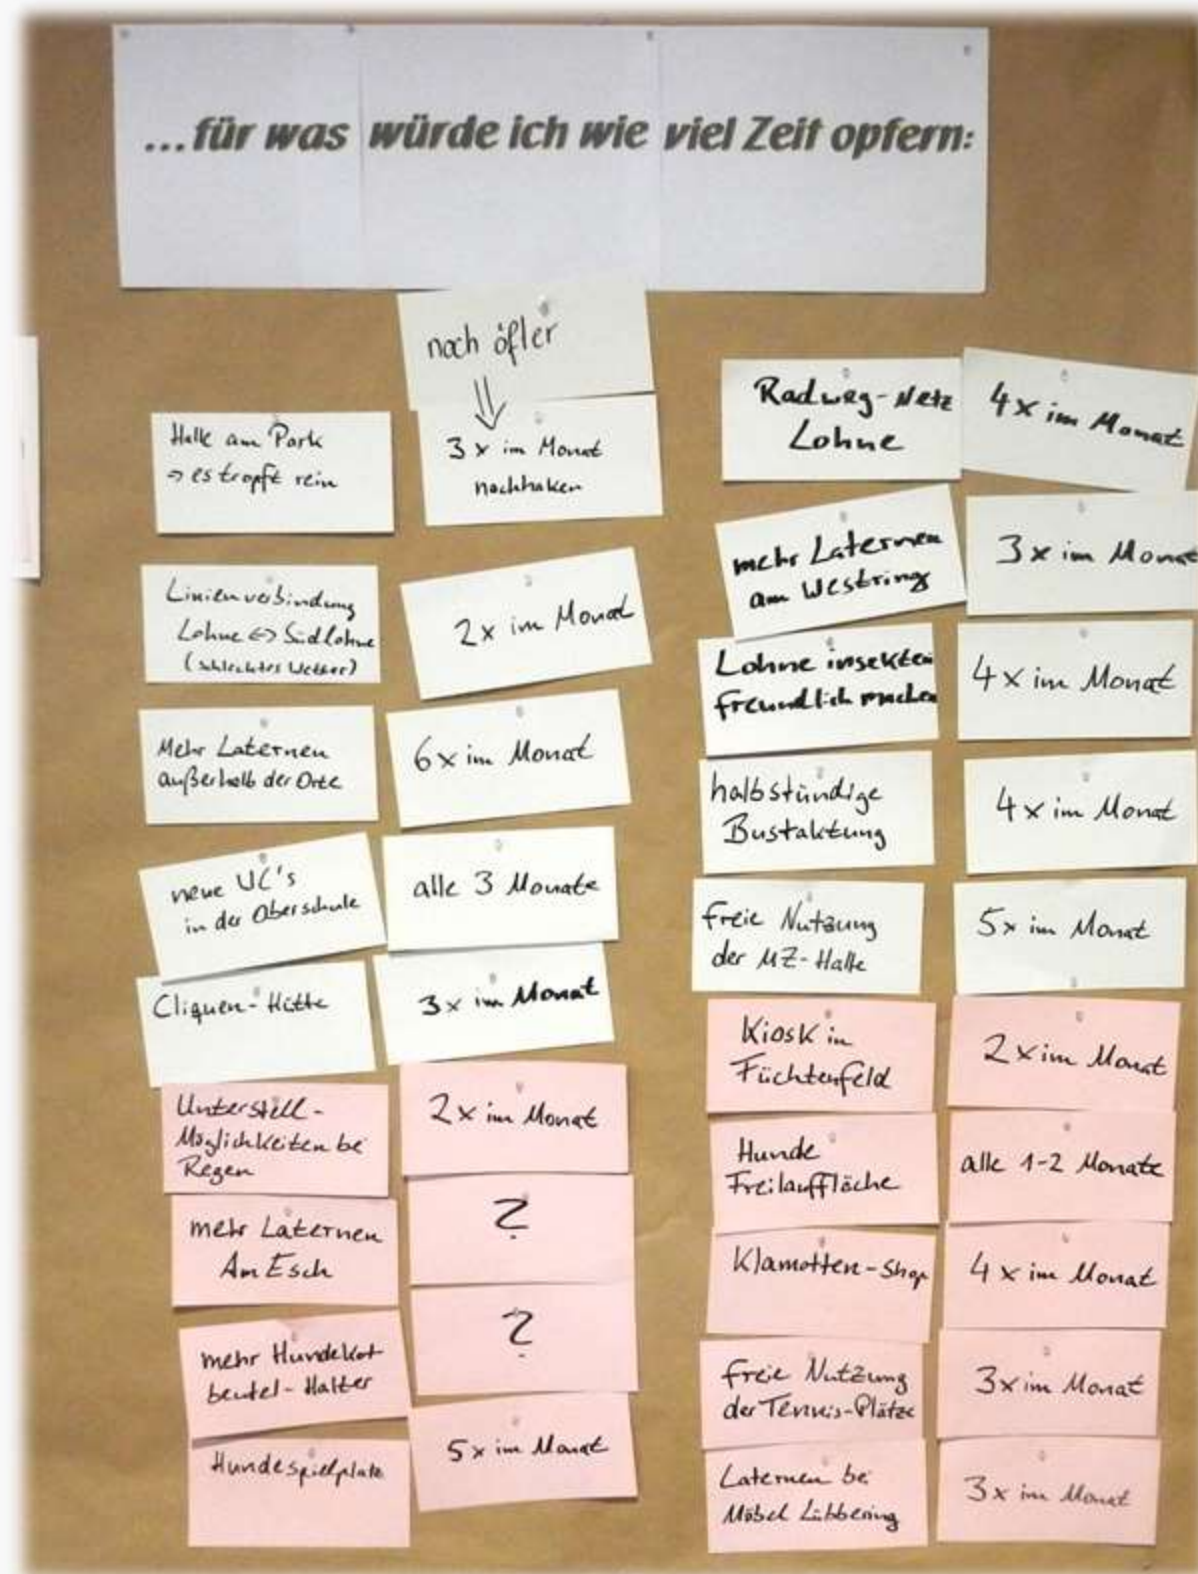 ...für was würde ich wie viel Zeit opfern:
noch öfter
Halle am Park
→ es tropft rein
3 x im Monat
nachhaken
Linienverbindung
Lohne ↔ Südlohne
(schlechtes Wetter)
2x im Monat
Mehr Laternen
außerhalb der Orte
6x im Monat
neue
in der Oberschule
alle 3 Monate
Cliquen-Hütte
3x im Monat
Unterstell-
Möglichkeiten bei
Regen
2x im Monat
mehr Laternen
Am Esch
?
mehr Hundekot
beutel-Halter
?
Hundespielplatz
5x im Monat
Radweg-Netz
Lohne
4x im Monat
mehr Laternen
am Westring
3x im Monat
Lohne insekten
freundlich machen
4x im Monat
halbstündige
Bustaktung
4x im Monat
freie Nutzung
der MZ-Halle
5x im Monat
Kiosk in
Füchtenfeld
2x im Monat
Hunde
Freilauffläche
alle 1-2 Monate
Klamotten-Shop
4x im Monat
freie Nutzung
der Tennis-Plätze
3x im Monat
Laternen bei
Möbel Lübbering
3x im Monat